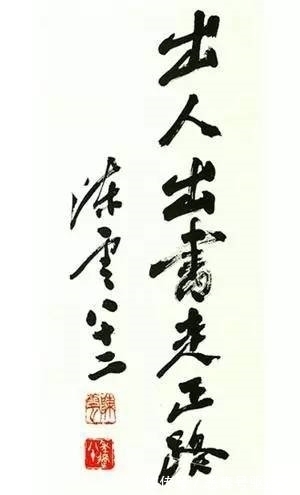 出人出书走正路
陈云八十二